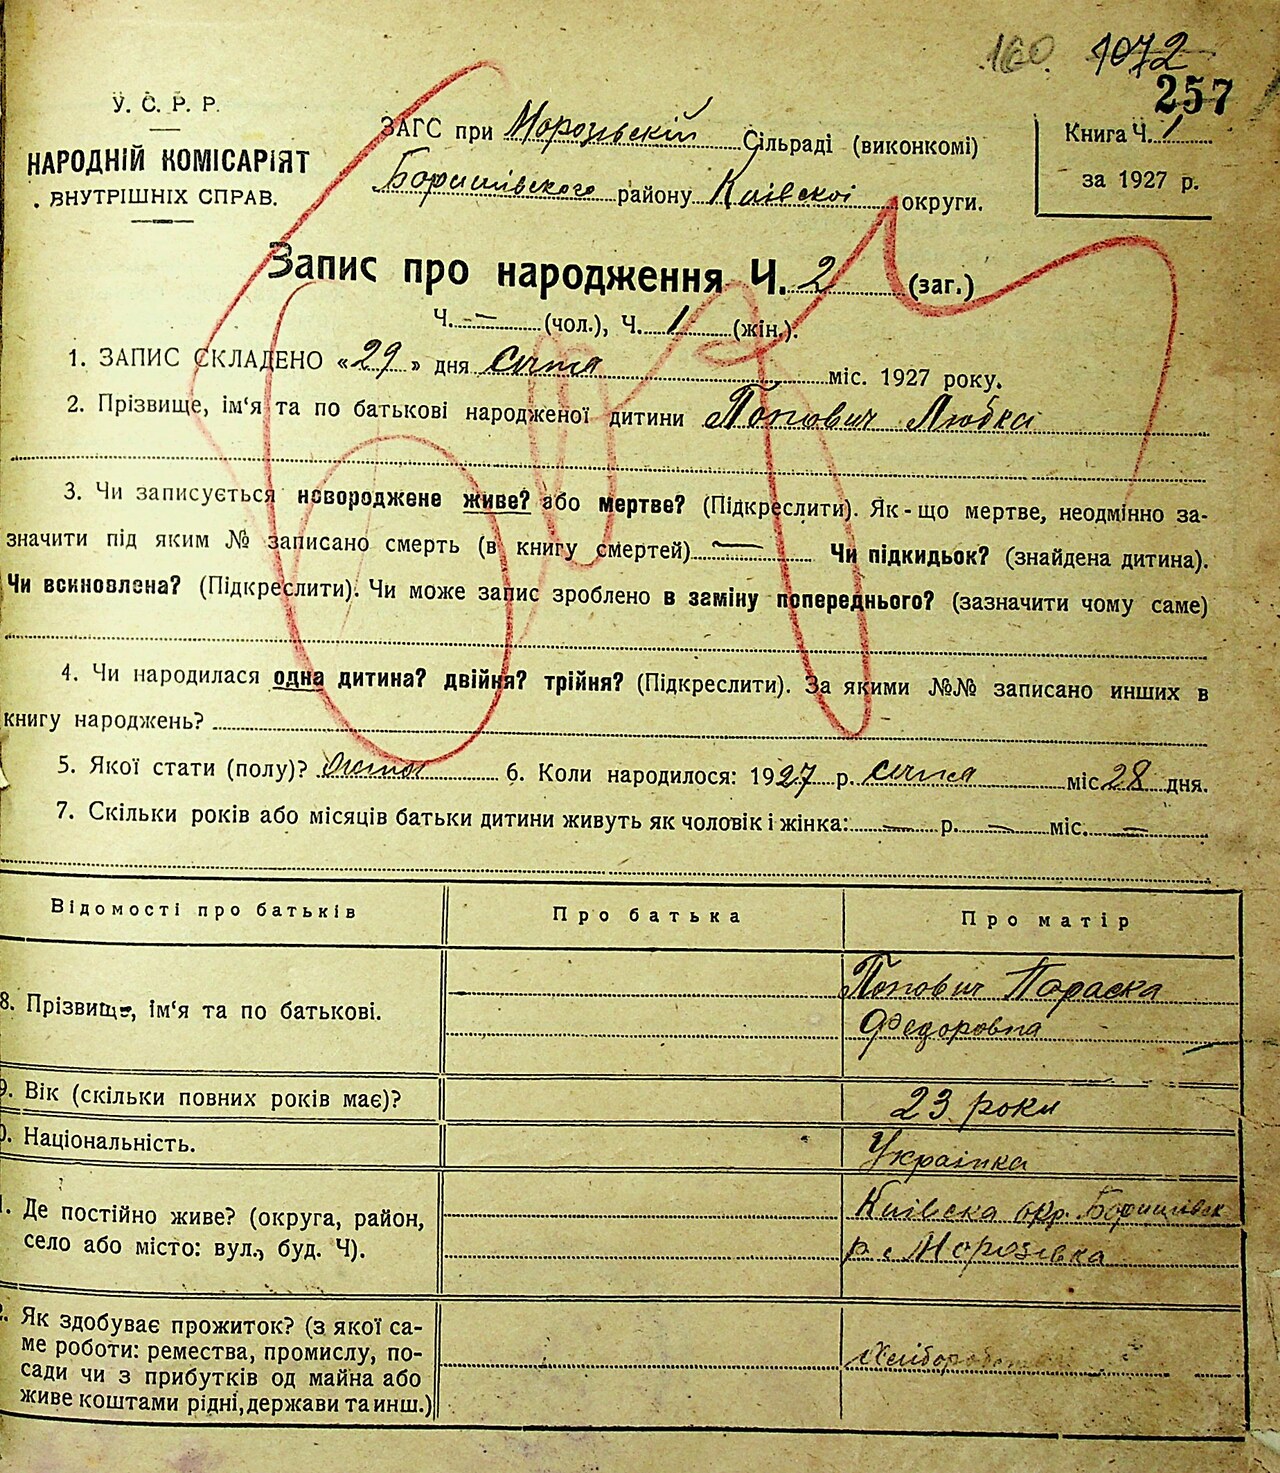 160. 1072
257
У. С. Р. Р.
НАРОДНІЙ КОМІСАРІЯТ
ВНУТРІШНІХ СПРАВ.
ЗАГС при Морозівскій Сільраді (виконкомі)
Боришівского району Київскоі округи.
Книга Ч. 1
за 1927 р.
Запис про народження Ч. 2 (заг.)
Ч. — (чол.), Ч. 1 (жін.).
1. ЗАПИС СКЛАДЕНО «29» дня січня міс. 1927 року.
2. Прізвище, ім‘я та по батькові народженої дитини Попович Любка
3. Чи записується новороджене живе? або мертве? (Підкреслити). Як-що мертве, неодмінно за-
значити під яким № записано смерть (в книгу смертей) — Чи підкидьок? (знайдена дитина).
Чи всиновлена? (Підкреслити). Чи може запис зроблено в заміну попереднього? (зазначити чому саме)
4. Чи народилася одна дитина? двійня? трійня? (Підкреслити). За якими №№ записано инших в
книгу народжень?
5. Якої стати (полу)? 6. Коли народилося: 1927 р. січня міс 28 дня.
7. Скільки років або місяців батьки дитини живуть як чоловік і жінка: — р. — міс. —
Відомості про батьків Про батька Про матір
8. Прізвище, ім‘я та по батькові. Попович Параска
Федоровна
9. Вік (скільки повних років має)? 23 роки
0. Національність. Украінка
1. Де постійно живе? (округа, район, Київска окр. Боришівск
село або місто: вул., буд. Ч). р. с Морозівка
2. Як здобуває прожиток? (з якої са-
ме роботи: ремества, промислу, по-
сади чи з прибутків од майна або
живе коштами рідні, держави та инш.)